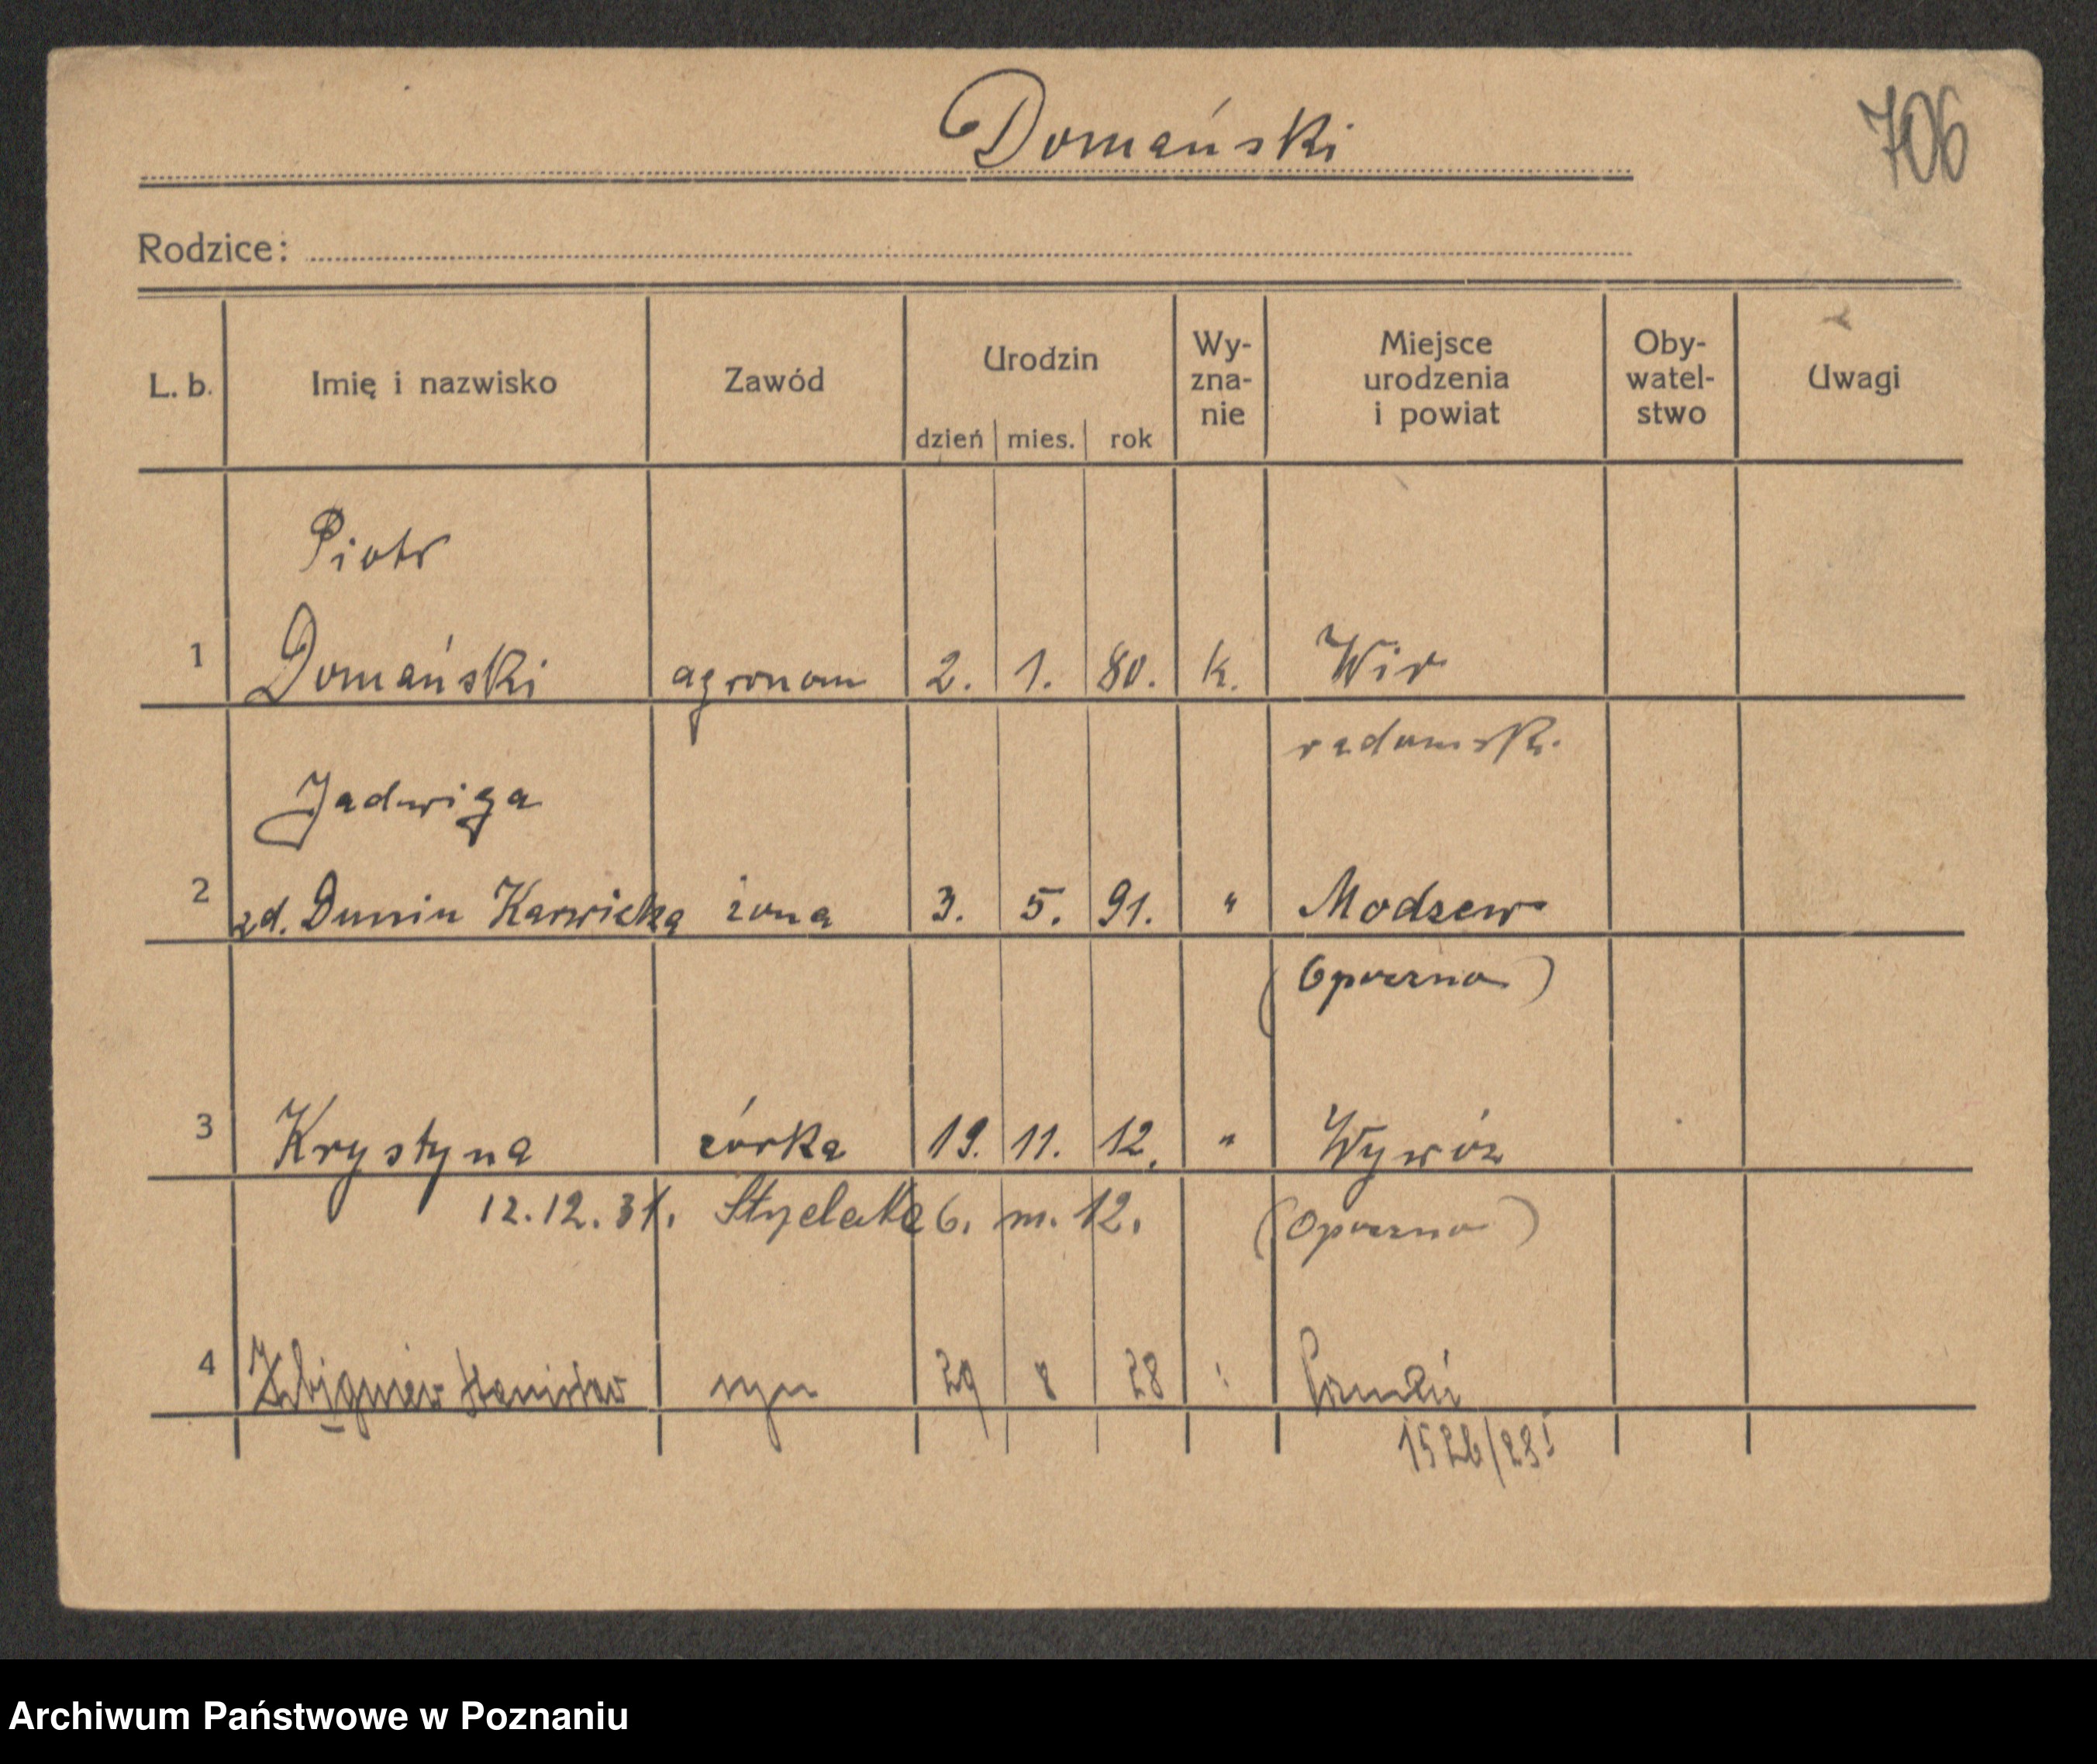 Domański
706
Rodzice:
L. b. Imię i nazwisko Zawód Urodzin dzień mies. rok Wy-zna-nie Miejsce urodzenia i powiat Oby-watel-stwo Uwagi
Piotr
1 Domański agronom 2. 1. 80. k. Wir
radomsk.
Jadwiga
2 zd. Dunin Karwicka żona 3. 5. 91. " Modrzew
(Opoczno)
3 Krystyna córka 19. 11. 12. " Wywóz
12.12.31. 6. m. 12. (Opoczno)
4 Zbigniew Stanisław syn 29 8 28 Poznań
Archiwum Państwowe w Poznaniu